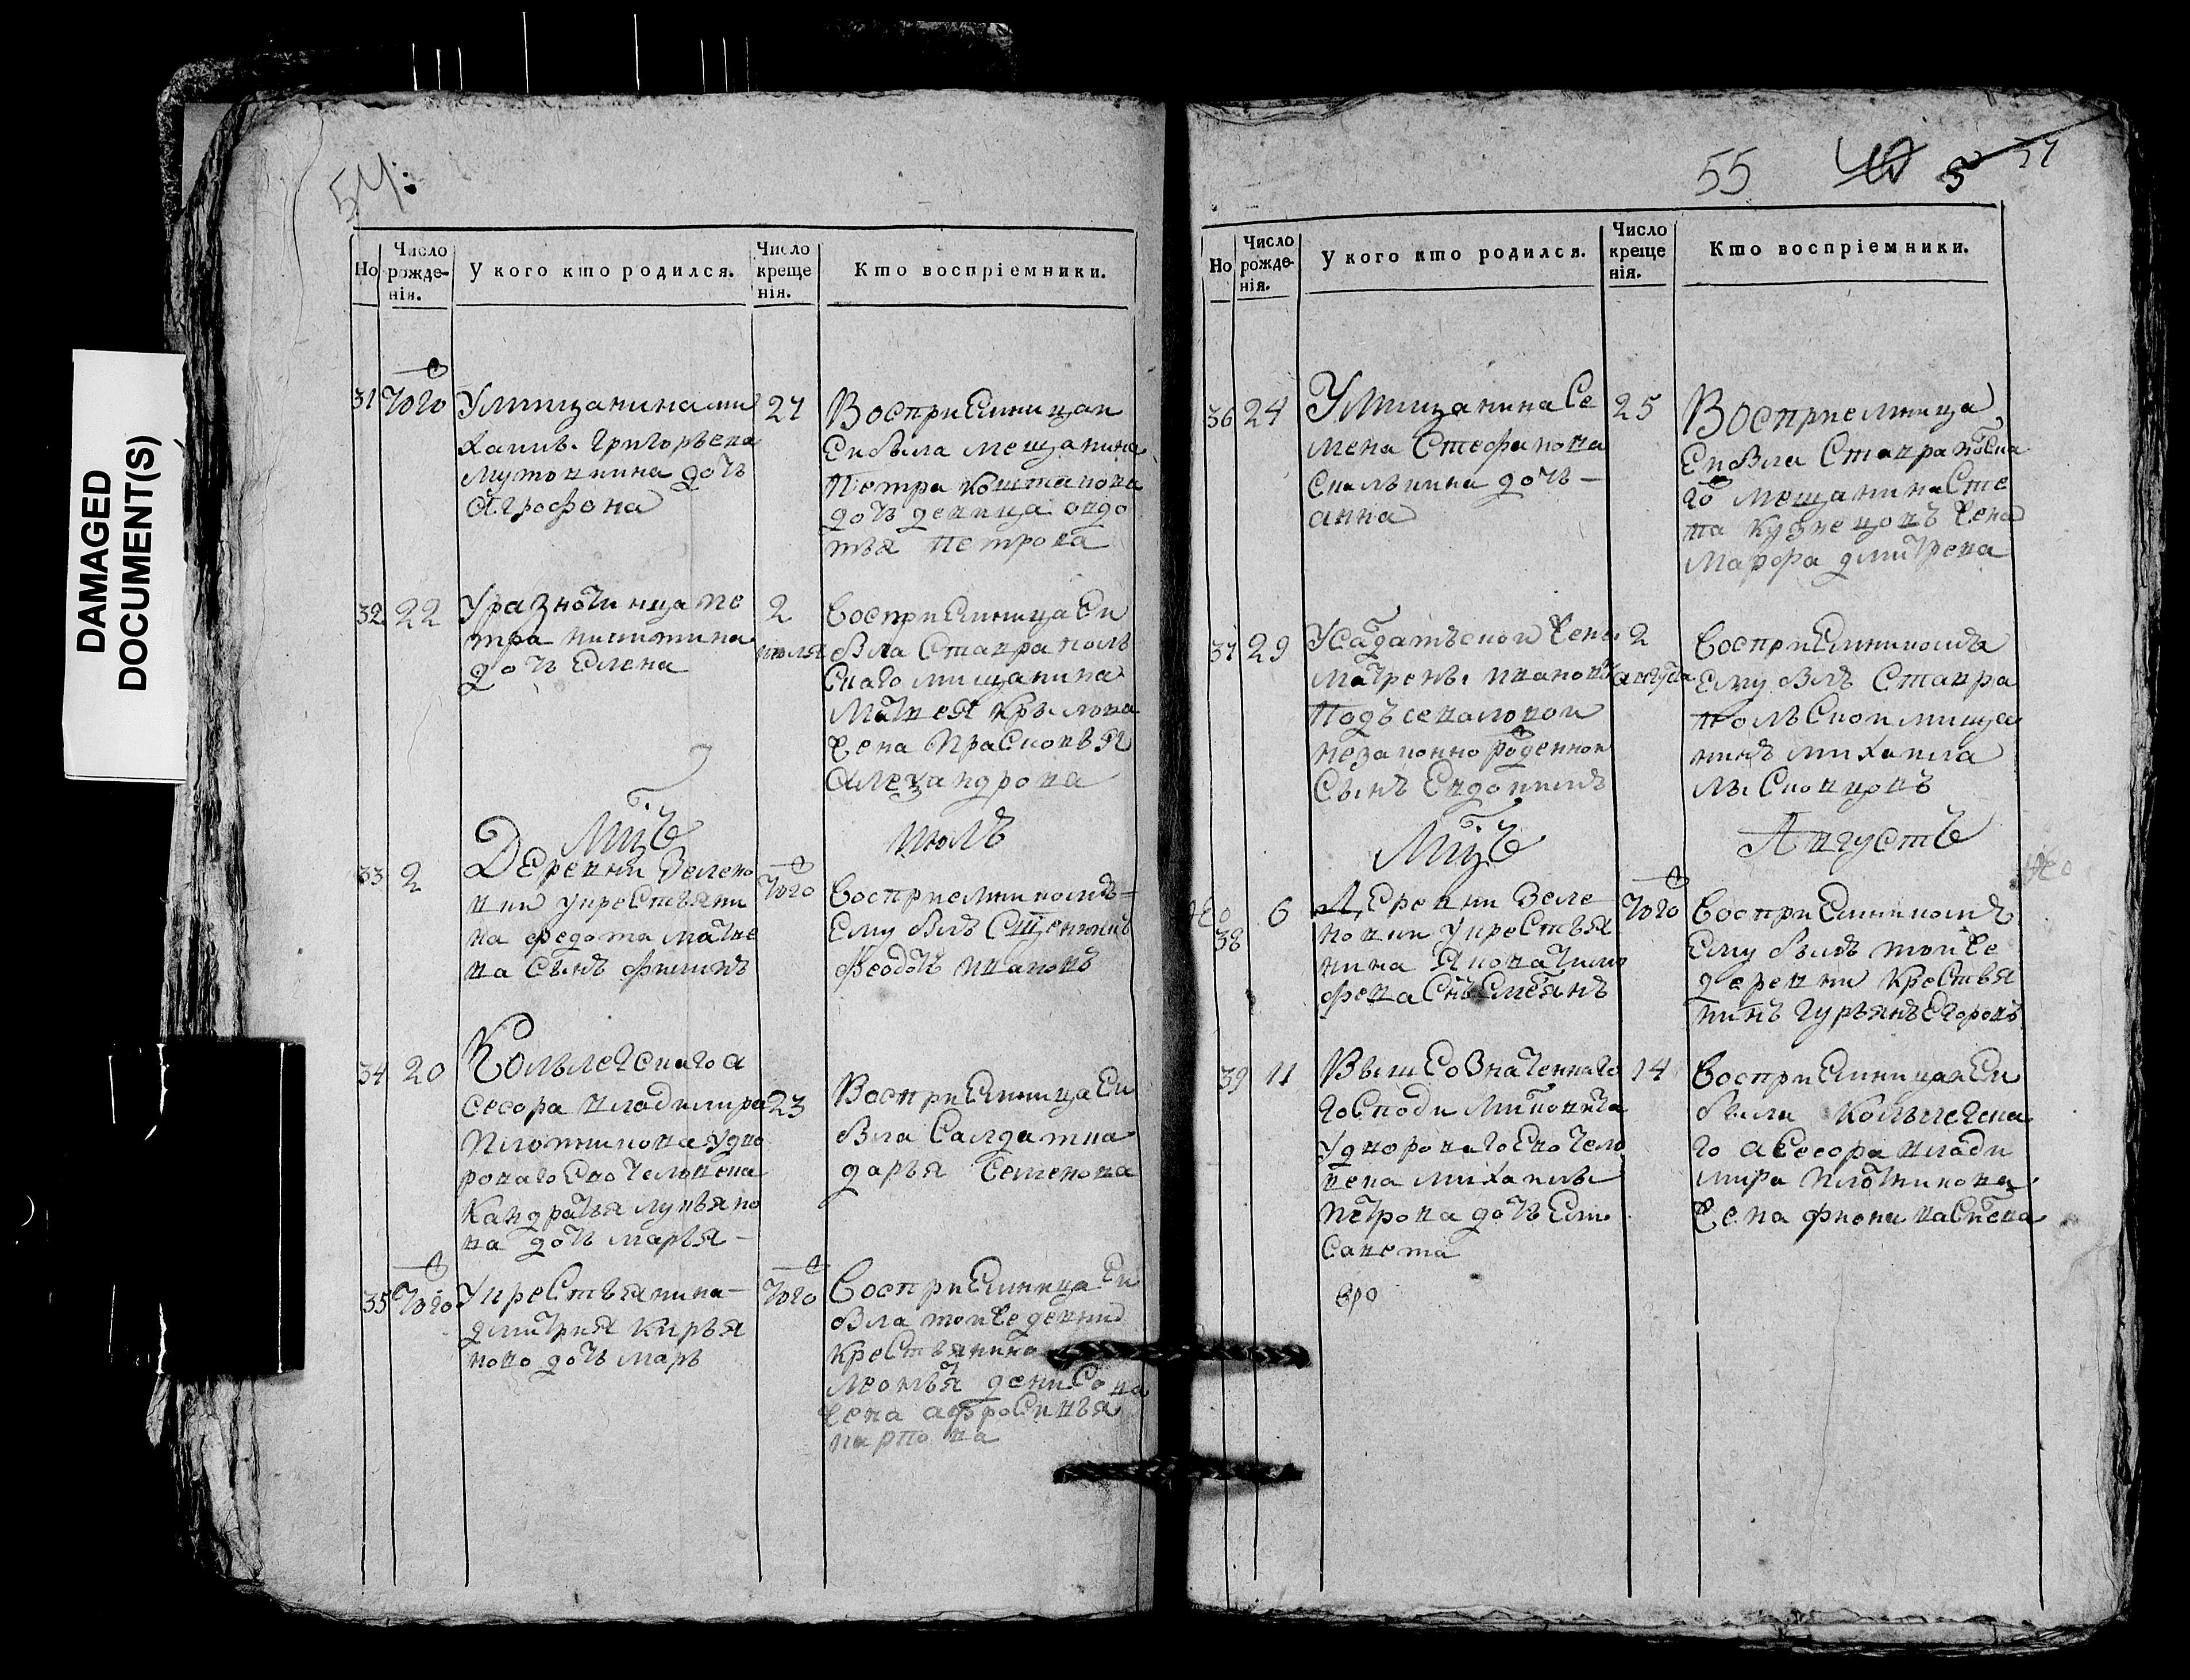 DAMAGED
DOCUMENT(S)
54:
Но
Число рожде-нія.
У кого кто родился.
Число креще нія.
Кто воспріемники.
31 того
Умищанина ми
хаилы Григорьева
мутовкина дочь
Агрофена
27
Восприемницаи
Ей была мещанина
Петра
дочь девица овдо
тья петрова
32 22
Уразночинца пе
тра никитина
дочь Елена
2
июля
восприемница Ей
была Ставраполь
скаго мищанина
Матвея крылова
жена прасковья
Алезандрова
Мцъ июль
33 2
Деревни Зелено
вки укрестьяни
на федота матве
ва сынъ филипъ
того
восприемникомъ
Ему былъ Сщенникъ
феодоръ ивановъ
34 20
Кольлегскаго а
сесора владимира
Плотникова удво
роваго Его человека
Кандратья лукьяно
ва дочь марья
23
Восприемница Ей
была Салдатка
дарья Семенова
35 того
Укрестьянина
дмитрия кирья
ново дочь марь
того
восприемница Ей
была тойже девни
крестьянина
Леонтья денисова
жена афросинья
карпова
55 40 5
Но
Число рожде-нія.
У кого кто родился.
Число креще нія.
Кто воспріемники.
36 24
Умищанина Се
мена Стефанова
дочь
анна
25
Восприемница
Ей была
го мещанина Сте
па кузнецовъ жена
Марфа дмитрева
37 29
Усалдатьской жены
матрены ивановы
Подъсеваловой
незаконно рожденной
сынъ Евдокимъ
2
августа
восприемникомъ
Ему былъ Ставра
польской мища
нинъ михаила
Мцъ Августъ
38 6
Деревни Зеле
новки укрестья
нина Якова тимо
феева снъ Емелянъ
того
восприемникомъ
Ему былъ тойже
деревни крестья
нинъ гурьянъ Егоровъ
39 11
Вышеозначеннаго
господи
удвороваго Его чело
века михаилы
петрова дочь Ели
савета
14
восприемницаи Ей
была кольлегска
го асесора влади
мира плотникова
жена